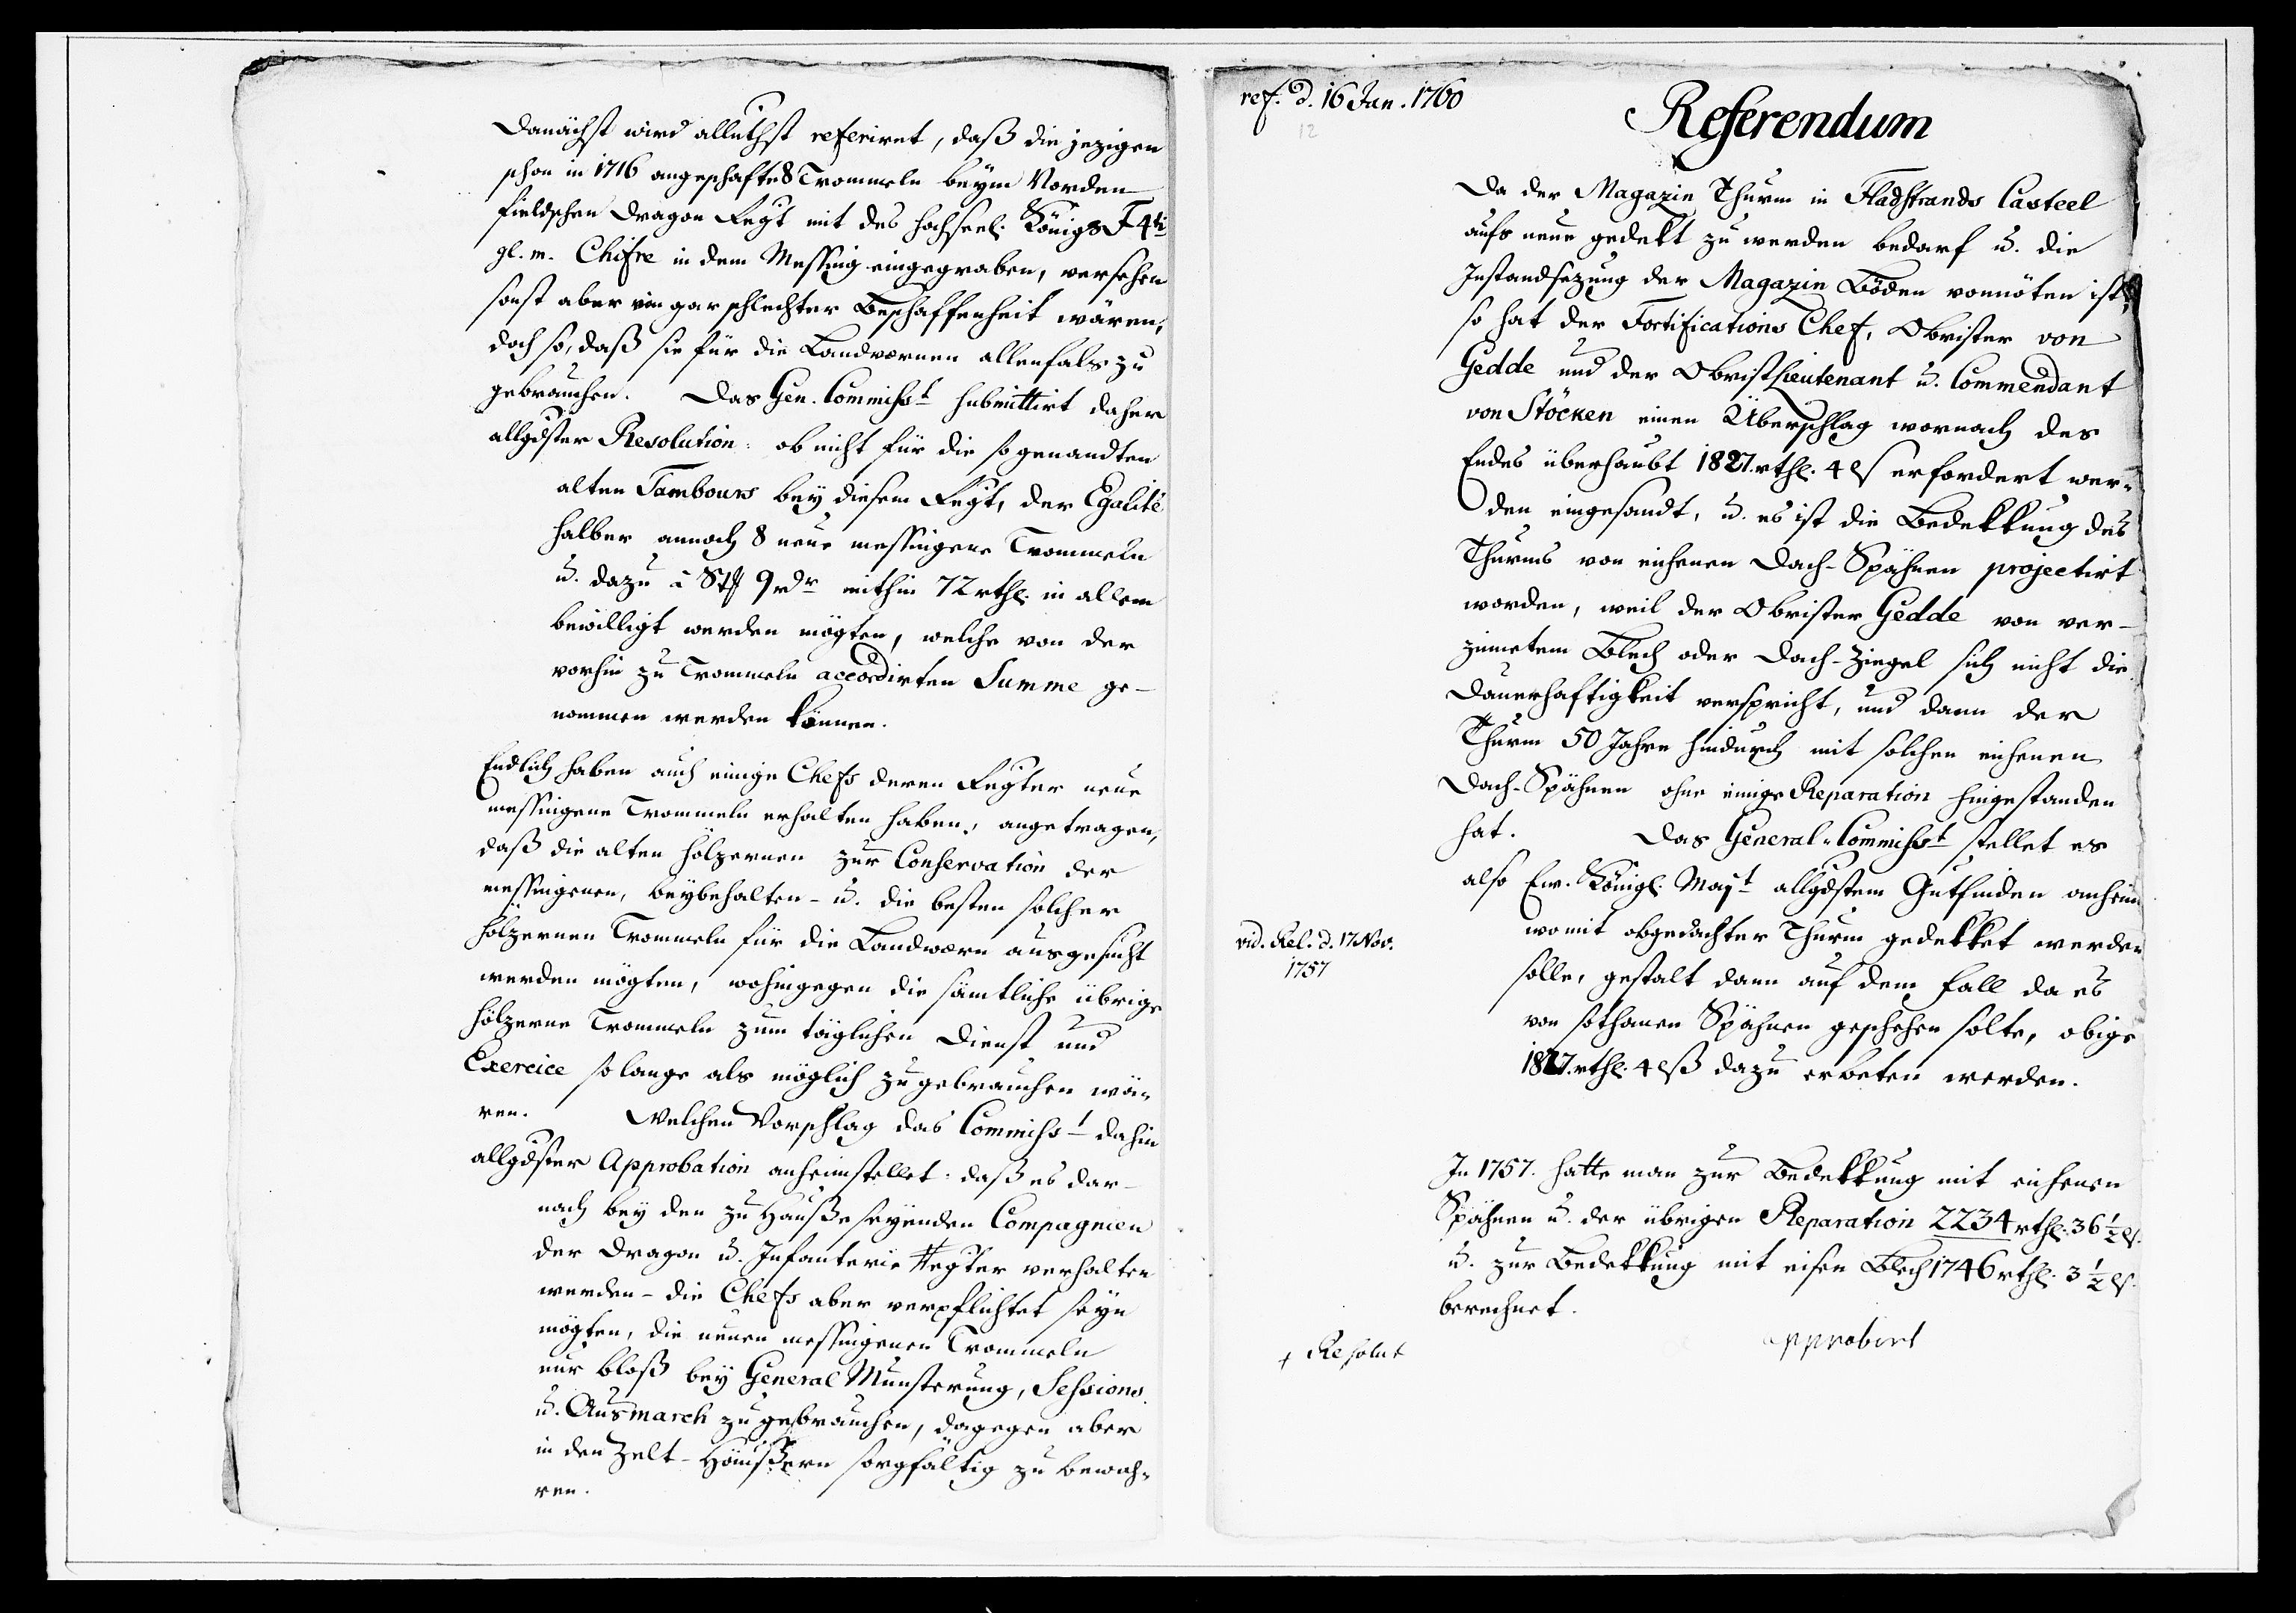 Danächst wird alluthst referiret, daß die jezigen
schon in 1716 angeschafte 8 Trommeln beym Norden-
fieldschen Dragon Regt mit des hochseel. Königs F 4ti
gl. m. Chifre in dem Messing eingegraben, versehen
sonst aber von gar schlechter Beschaffenheit wären,
doch so, daß sie für die Landvaernen allenfals zu
gebrauchen. Das Gen. Commisst submittirt daher
allgdster Resolution: ob nicht für die so genandten
alten Tambours bey diesem Regt, der Egalité
halber annoch 8 neue messingene Trommeln
u. dazu à St 9 rdr mithin 72 rthl. in allem
bewilligt werden mögten, welche von der
vorhin zu Trommeln accordirten Summe ge-
nommen werden können.
Endlich haben auch einige Chefs deren Regter neue
messingene Trommeln erhalten haben, angetragen,
daß die alten hölzernen zur Conservation der
messingenen, beybehalten - u. die besten solcher
hölzernen Trommeln für die Landwaern ausgesucht
werden mögten, wohingegen die sämtliche übrige
hölzerne Trommeln zum täglichen Dienst und
Exercice so lange als möglich zu gebrauchen wä-
ren. Welchen Vorschlag das Commisst dahin
allgdster Approbation anheimstellet: daß es dar-
nach bey den zu Hausse seyenden Compagnien
der Dragon u. Infanterie Regter verhalten
werden - die Chefs aber verpflichtet seyn
mögten, die neuen messingenen Trommeln
nur bloß bey General Munsterung, Sessions
u. Ausmarch zu gebrauchen, dagegen aber
in den Zelt-Häussern sorgfältig zu bewah-
ren.
ref. d. 16 Jan. 1760
12
Referendum
Da der Magazin Thurm in Fladstrands Casteel
aufs neue gedekt zu werden bedarf u. die
Instandsezung der Magazin Böden vonnöten ist,
so hat der Fortifications Chef, Obrister von
Gedde und der ObristLieutenant u. Commendant
von Stöcken einen Überschlag wornach des
Endes überhaubt 1827 rthl. 4 ls erfordert wer-
den eingesandt, u. es ist die Bedekkung des
Thurms von eichenen Dach-Spähnen projectirt
worden, weil der Obrister Gedde von ver-
zinnetem Blech oder Dach-Ziegel sich nicht die
Dauerhaftigkeit verspricht, und dann der
Thurm 50 Jahre hindurch mit solchen eichenen
Dach-Spähnen ohne einige Reparation hingestanden
hat. Das General-Commisst stellet es
also Ew. Königl. Majt allgdstem Gutfinden anheim
womit obgedachter Thurm gedekket werden
solle, gestalt dann auf dem Fall da es
von sothanen Spähnen geschehen solte, obige
1827 rthl. 4 lß dazu erbeten werden.
vid. Rel. d. 17 Nov.
1757
In 1757. hatte man zur Bedekkung mit eichenen
Spähnen u. der übrigen Reparation 2234 rthl. 36 ½ ls.
u. zur Bedekkung mit eisen Blech 1746 rthl. 3 ½ ls.
berechnet.
approbirt
+ Resolut